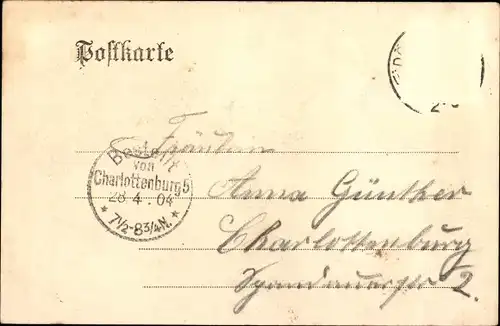 Postkarte
Bestellt
von
Charlottenburg 5
28 4. 04
* 7½-8¾N. *
Fräulein
Anna Günther
Charlottenburg
Spandauerstr 2.